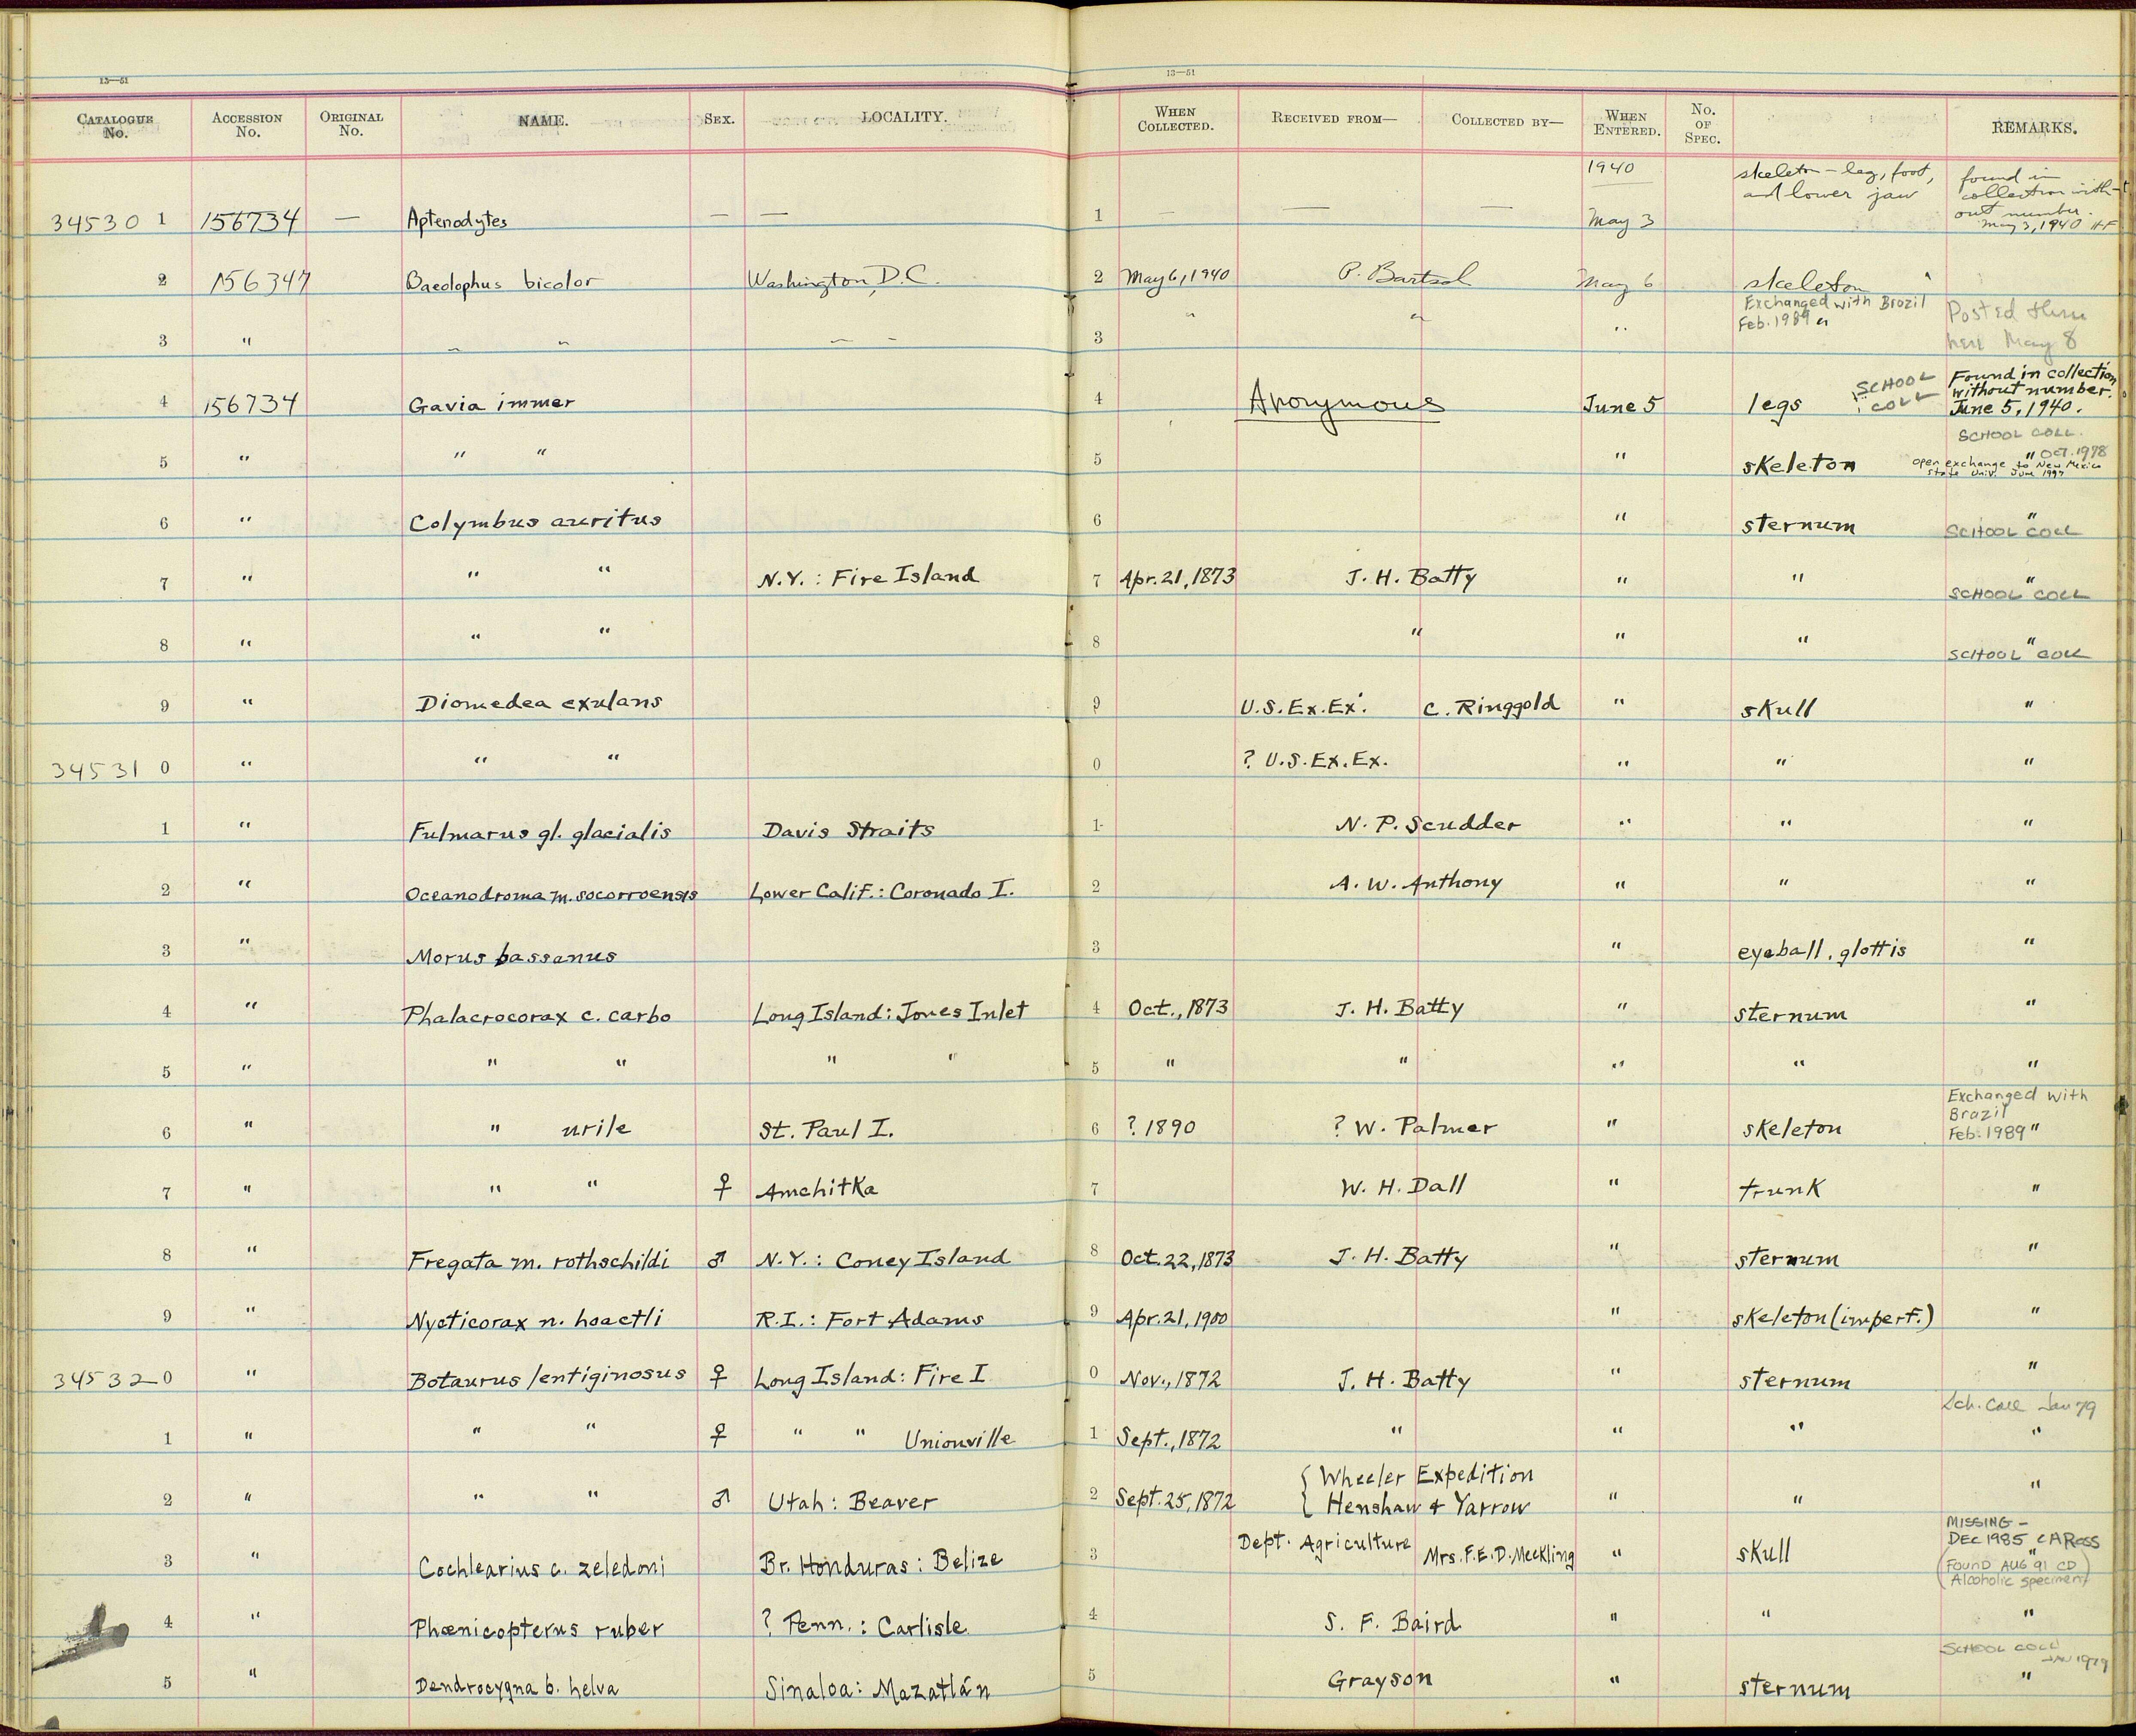 13—51
13—51
CATALOGUE No. ACCESSION No. ORIGINAL No. NAME. SEX. LOCALITY. WHEN COLLECTED. RECEIVED FROM— COLLECTED BY— WHEN ENTERED. No. OF SPEC. REMARKS.
34530 1 156734 — Aptenodytes — — 1 — — — 1940 May 3 skeleton - leg, foot, and lower jaw found in collection without number. May 3, 1940 HF
2 156347 Baeolophus bicolor Washington, D.C. 2 May 6, 1940 P. Bartsch May 6 skeleton
3 " " " " " 3 " " " Exchanged with Brazil Feb. 1989 " Posted thru here May 8
4 156734 Gavia immer 4 Anonymous June 5 legs SCHOOL COLL Found in collection without number. June 5, 1940.
5 " " " 5 " skeleton SCHOOL COLL. " OCT. 1978 open exchange to New Mexico State Univ. June 1997
6 " Colymbus auritus 6 " sternum " SCHOOL COLL
7 " " " N.Y.: Fire Island 7 Apr. 21, 1873 J. H. Batty " " " SCHOOL COLL
8 " " " 8 " " " " SCHOOL COLL
9 " Diomedea exulans 9 U.S. Ex. Ex. C. Ringgold " skull "
34531 0 " " " 0 ? U.S. Ex. Ex. " " "
1 " Fulmarus gl. glacialis Davis Straits 1 N. P. Scudder " " "
2 " Oceanodroma m. socorroensis Lower Calif.: Coronado I. 2 A. W. Anthony " " "
3 " Morus bassanus 3 " eyeball, glottis "
4 " Phalacrocorax c. carbo Long Island: Jones Inlet 4 Oct., 1873 J. H. Batty " sternum "
5 " " " " " 5 " " " " "
6 " " urile St. Paul I. 6 ? 1890 ? W. Palmer " skeleton Exchanged with Brazil Feb. 1989 "
7 " " " ♀ Amchitka 7 W. H. Dall " trunk "
8 " Fregata m. rothschildi ♂ N.Y.: Coney Island 8 Oct. 22, 1873 J. H. Batty " sternum "
9 " Nycticorax n. hoactli R.I.: Fort Adams 9 Apr. 21, 1900 " skeleton (imperf.) "
34532 0 " Botaurus lentiginosus ♀ Long Island: Fire I 0 Nov., 1872 J. H. Batty " sternum "
1 " " " ♀ " " Unionville 1 Sept., 1872 " " " Sch. Coll Jan 79 "
2 " " " ♂ Utah: Beaver 2 Sept. 25, 1872 { Wheeler Expedition Henshaw & Yarrow " " "
3 " Cochlearius c. zeledoni Br. Honduras: Belize 3 Dept. Agriculture Mrs. F. E. D. Meckling " skull MISSING - DEC 1985 CA Ross " (FOUND AUG '91 CD Alcoholic specimen)
4 " Phœnicopterus ruber ? Penn.: Carlisle 4 S. F. Baird " " "
5 " Dendrocygna b. helva Sinaloa: Mazatlán 5 Grayson " sternum SCHOOL COLL JAN 1979 "